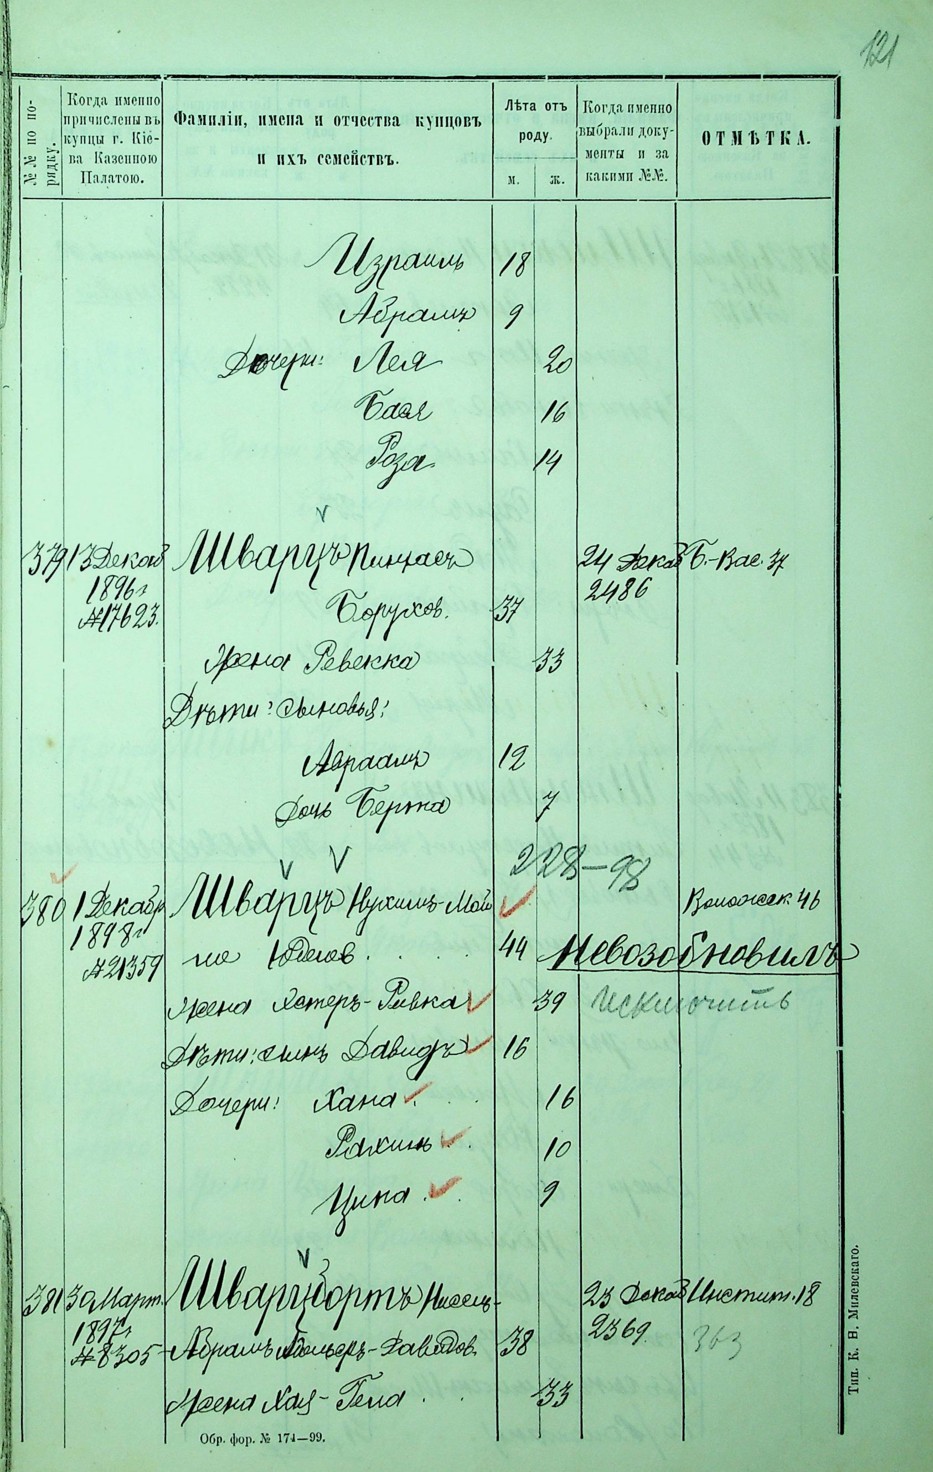 121
№№ по порядку.
Когда именно причислены въ купцы г. Кіева Казенною Палатою.
Фамиліи, имена и отчества купцовъ и ихъ семействъ.
Лѣта отъ роду.
м.
ж.
Когда именно выбрали документы и за какими №№.
ОТМѢТКА.
Израиль 18
Абрамъ 9
Дочери: Лея 20
Бася 16
Роза 14
379 13 Декаб Шварцъ Пинхасъ 24 Декаб Б.-Вас. 37
1896 г. Борухов. 37 2486
№17623. Жена Ревекка 33
Дѣти: сыновья:
Авраамъ 12
Дочь Берта 7
228-98
380 1 Декабр Шварцъ Нухимъ-Мой
1898 г. ше 44 Невозобновилъ
№21359
Жена Хстеръ-Ривка 39 Исключить
Дѣти: сынъ Давидъ 16
Дочери: Хана 16
Рахиль 10
Цина 9
381 30 Март. Шварцбортъ Нисель- 23 Декаб Инстит. 18
1897 г. 2369. 363
№8305 Абрамъ Давидов. 38
Жена Хая-Гела 33
Обр. фор. № 174—99.
Тип. К. Н. Милевскаго.